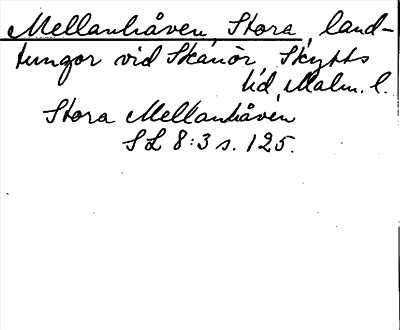 Mellanhåven, Stora, land-
tungor vid Skanör, Skytts
hd, Malm. l.
Stora Mellanhåven
SL 8:3 s. 125.